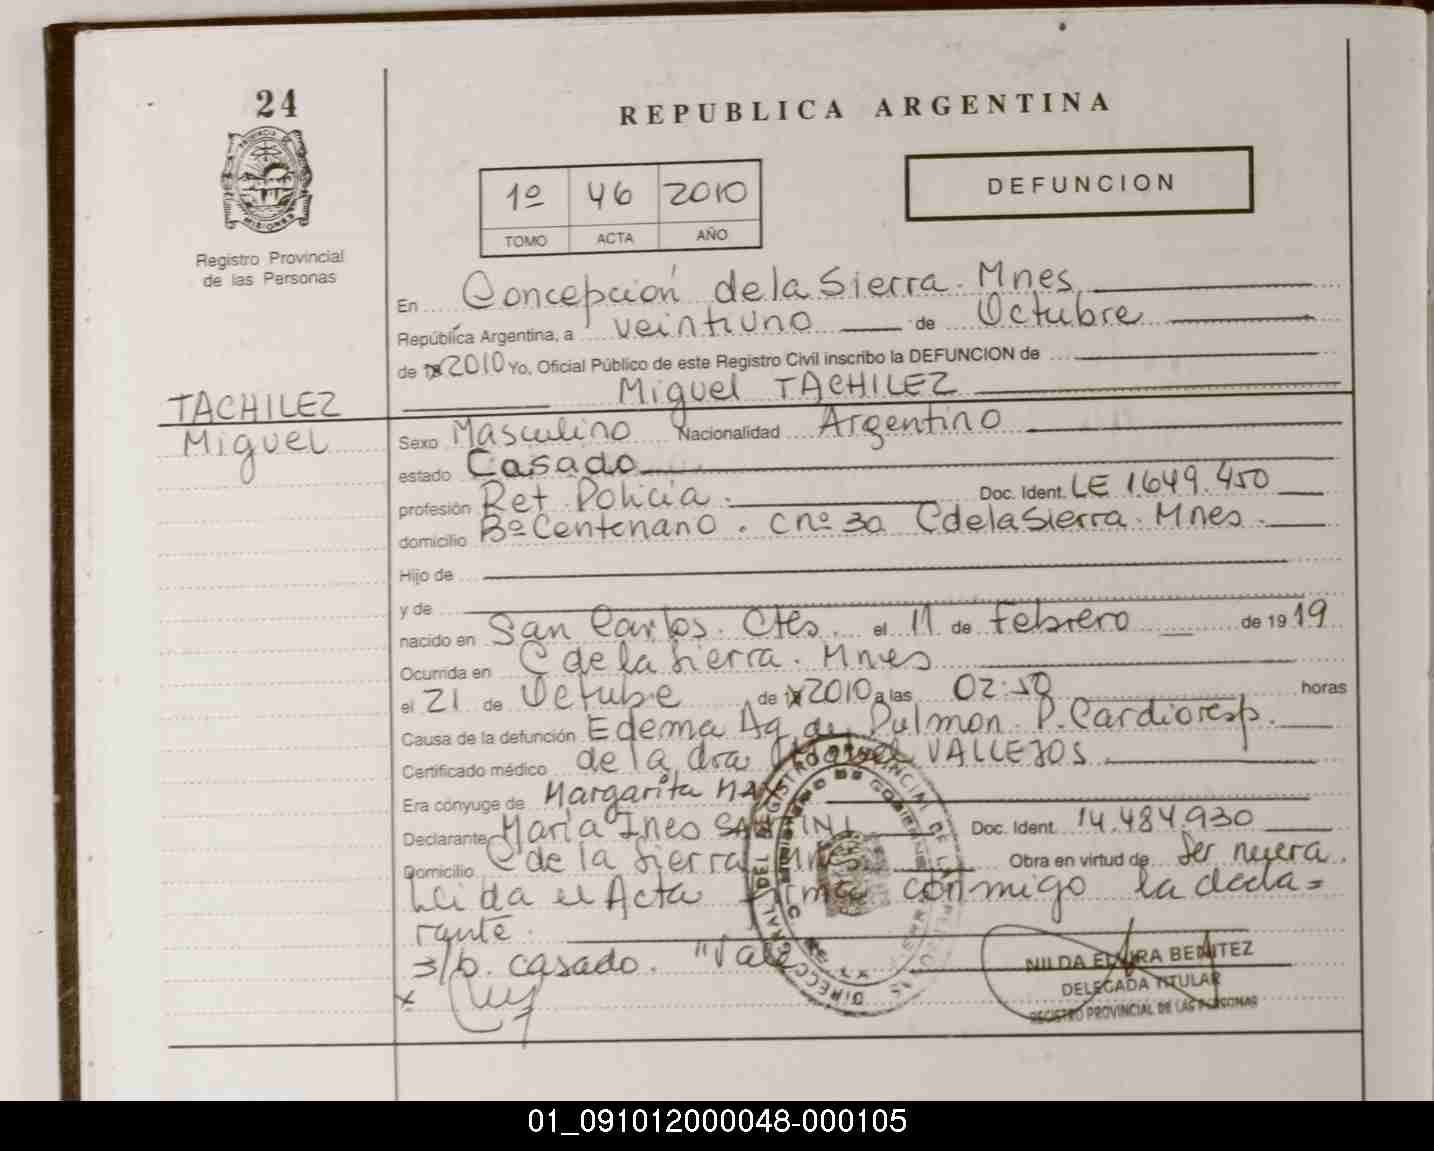 24
REPUBLICA ARGENTINA
Registro Provincial
de las Personas
1º 46 2010
TOMO ACTA AÑO
DEFUNCION
En Concepción de la Sierra. Mnes
República Argentina, a veintiuno de Octubre
de 2010 Yo, Oficial Público de este Registro Civil inscribo la DEFUNCION de
TACHILEZ
Miguel
Miguel TACHILEZ
Sexo Masculino Nacionalidad Argentino
estado Casado
profesión Ret. Policia. Doc. Ident. LE 1.649.450
domicilio Bº Centenario. c nº 30 C de la Sierra. Mnes.
Hijo de
y de
nacido en San Carlos. Ctes. el 11 de Febrero de 1919
Ocurrida en C de la Sierra. Mnes
el 21 de Octubre de 2010 a las 02:50 horas
Causa de la defunción Edema Ag. de Pulmon. P. Cardioresp.
Certificado médico de la dra VALLEJOS
Era cónyuge de Margarita
Declarante María Ines Doc. Ident. 14.484.930
Domicilio C de la Sierra Mnes. Obra en virtud de Ser nuera.
Leida el Acta firma conmigo la decla=
rante.
s/b. casado. "Vale
NILDA ELVIRA BENITEZ
DELEGADA TITULAR
REGISTRO PROVINCIAL DE LAS PERSONAS
01_091012000048-000105